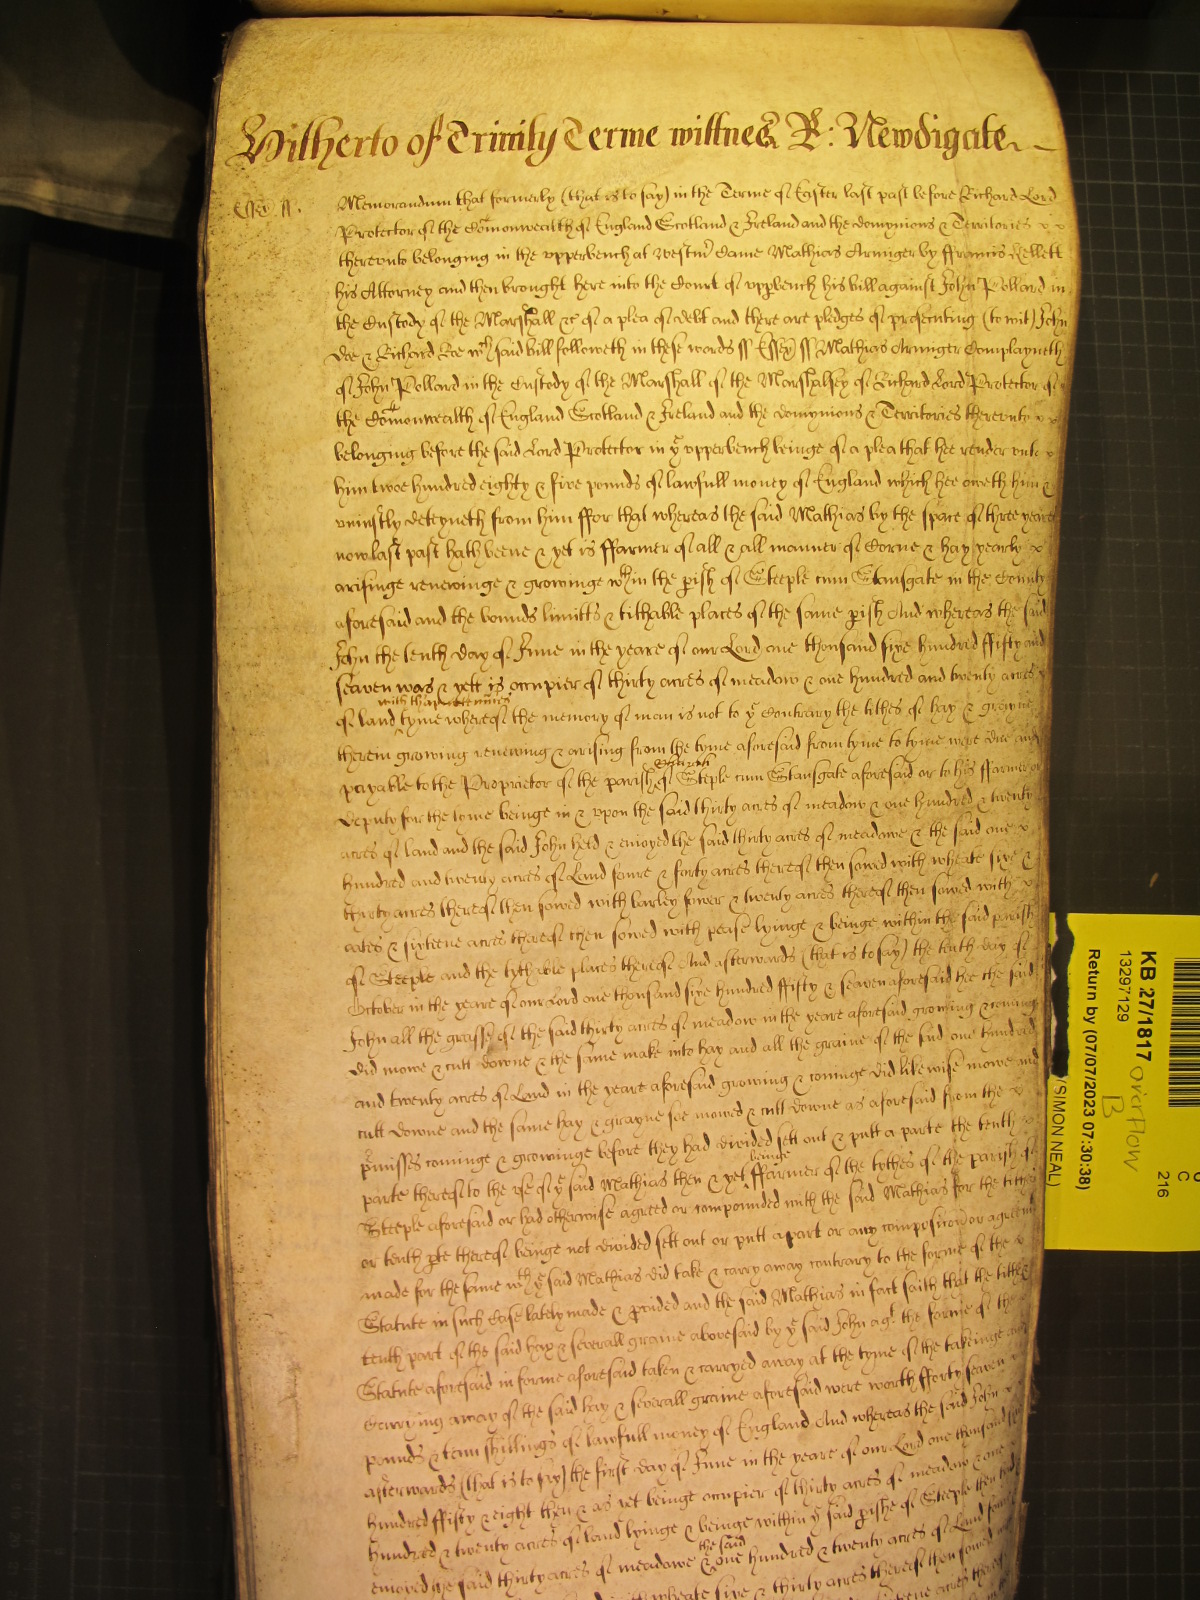 Hitherto of Trinity Terme wittnes R: Newdigate
Essex ss. Memorandum that formerly (that is to say) in the Terme of Easter last past before Richard Lord
Protector of the Comonwealth of England Scotland & Ireland and the dominyons & Territories
thereunto belonging in the upperbench at Westmr Came Mathias Arunger by ffrancis Kellett
his Attorney and then brought here into the Court of upperbench his bill against John Pollard in
the Custody of the Marshall &c of a plea of debt and there are pledges of prosecuting (to wit) John
Doe & Richard Roe wch said bill followeth in these words ss Essex ss Mathias Arunger Complayneth
of John Pollard in the Custody of the Marshall of the Marshalsey of Richard Lord Protector of
the Comonwealth of England Scotland & Ireland and the dominyons & Territories thereunto
belonging before the said Lord Protector in ye upperbench beinge of a plea that hee render unto
him twoe hundred eighty & five pounds of lawfull money of England which hee oweth him &
uniustly deteyneth from him ffor that whereas the said Mathias by the space of three yeares
now last past hath beene & yet is ffarmer of all & all manner of Corne & hay yearly
arisinge renewinge & growinge wthin the pish of Steeple cum Stansgate in the County
aforesaid and the bounds limitts & tithable places of the same pish And whereas the said
John the tenth day of June in the yeare of our Lord one thousand sixe hundred ffifty and
seaven was & yett is occupier of thirty acres of meadow & one hundred and twenty acres
with thappurtennces
of land tyme whereof the memory of man is not to ye Contrary the tithes of hay & graine
therein growing renewing & arising from the tyme aforesaid from tyme to tyme were due and
payable to the Proprietor of the parish of Steple cum Stansgate aforesaid or to his ffarmer or
deputy for the tyme beinge in & upon the said thirty acres of meadow & one hundred & twenty
acres of land and the said John held & enioyed the said thirty acres of meadowe & the said one
hundred and twenty acres of Land foure & forty acres thereof then sowed with wheate sixe &
thirty acres thereof then sowed with barley fower & twenty acres thereof then sowed with
oates & sixteene acres thereof then sowed with pease lyinge & beinge within the said parish
of Steeple and the tythable places thereof And afterwards (that is to say) the tenth day of
October in the yeare of our Lord one thousand sixe hundred ffifty & seaven aforesaid hee the said
John all the grasse of the said thirty acres of meadow in the yeare aforesaid growing & cominge
did mowe & cutt downe & the same make into hay and all the graine of the said one hundred
and twenty acres of Land in the yeare aforesaid growing & cominge did likewise mowe and
cutt downe and the same hay & grayne soe mowed & cutt downe as aforesaid from the
pmisses cominge & growinge before they had divided sett out & putt a parte the tenth
parte thereof to the use of ye said Mathias then & yet beinge ffarmer of the tythes of the parish of
Steeple aforesaid or had otherwise agreed or compounded with the said Mathias for the tithes
or tenth pte thereof beinge not divided sett out or putt apart or any composition or agreemt
made for the same wth ye said Mathias did take & carry away contrary to the forme of the
Statute in such Case lately made & pvided and the said Mathias in fact saith that the tithe
tenth part of the said hay & severall graine abovesaid by ye said John agt the forme of the
Statute aforesaid in forme aforesaid taken & carryed away at the tyme of the takeinge and
carrying away of the said hay & severall graine aforesaid were worth fforty seaven
pounds & tenn shillings of lawfull money of England And whereas the said John
afterwards (that is to say) the first day of June in the yeare of our Lord one thousand sixe
hundred ffifty & eight then & as yet beinge occupier of thirty acres of meadow & one
hundred & twenty acres of land lyinge & beinge within ye said pishe of Steeple then held
enioyed the said thirty acres of meadowe & the said one hundred & twenty acres of Land
wheate sixe & thirty acres thereof then sowed
KB 27/1817 overflow
B
13297129
Return by (07/07/2023 07:30:38)
(SIMON NEAL)
C
216